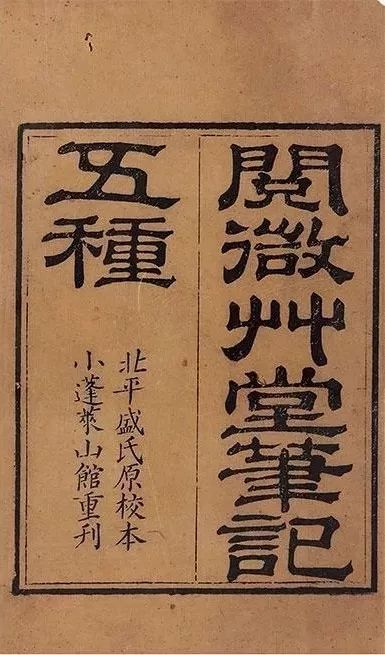 閱微艸堂筆記
五種
北平盛氏原校本
小蓬萊山館重刊